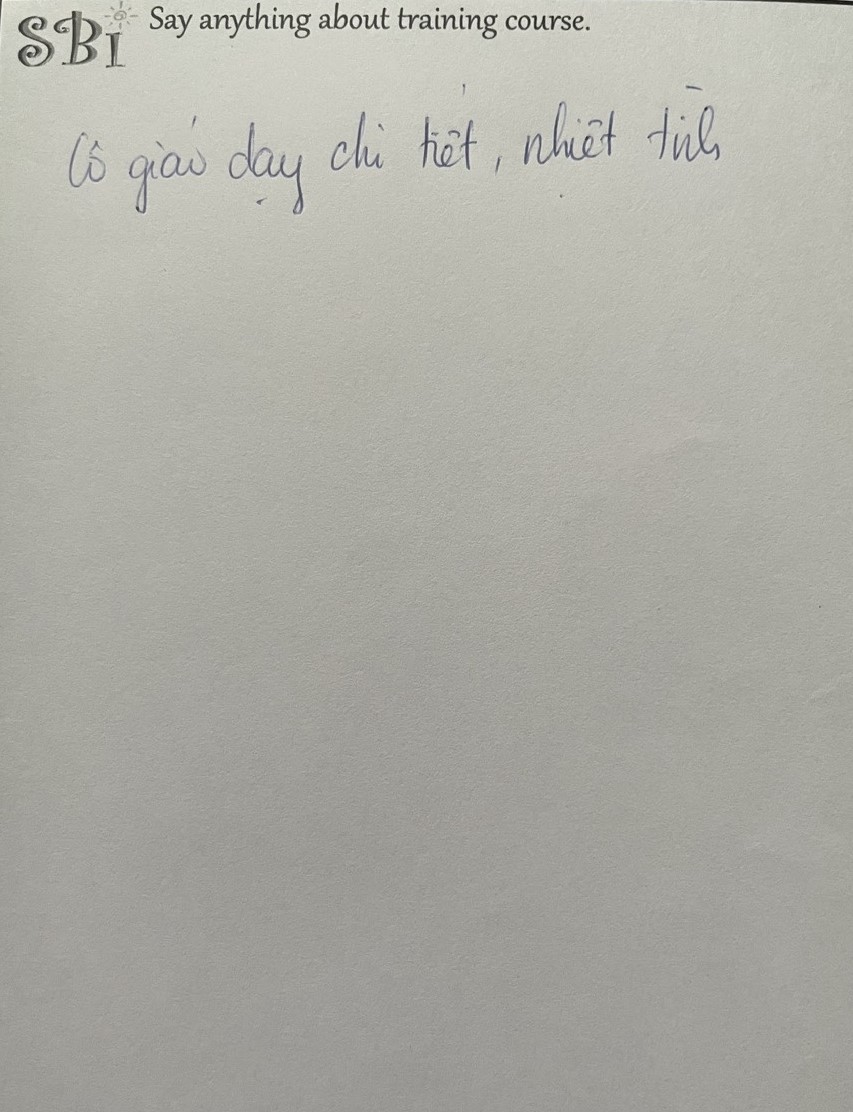 SBI Say anything about training course.
Cô giáo dạy chi tiết, nhiệt tình